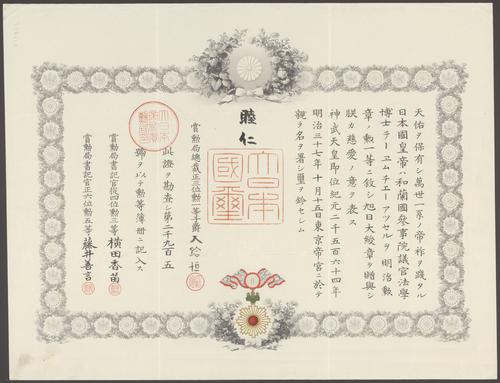 天佑ヲ保有シ萬世一系ノ帝祚ヲ踐タル
日本國皇帝ハ和蘭國參事院議官法學
博士テー、エムチエーアッセルヲ明治勲
章ノ勲一等ニ敘シ旭日大綬章ヲ贈與シ
朕カ慈愛ノ意ヲ表ス
神武天皇即位紀元二千五百六十四年
明治三十七年十月十五日東京帝宮ニ於テ
親ラ名ヲ署シ璽ヲ鈐セシム
睦仁
大日本國璽
賞勲局總裁正三位勲一等子爵大給恒
此證ヲ勘査シ第二千九百五
號ヲ以テ勲等簿冊ニ記入ス
賞勲局書記官從四位勲三等横田香苗
賞勲局書記官正六位勲五等藤井善言